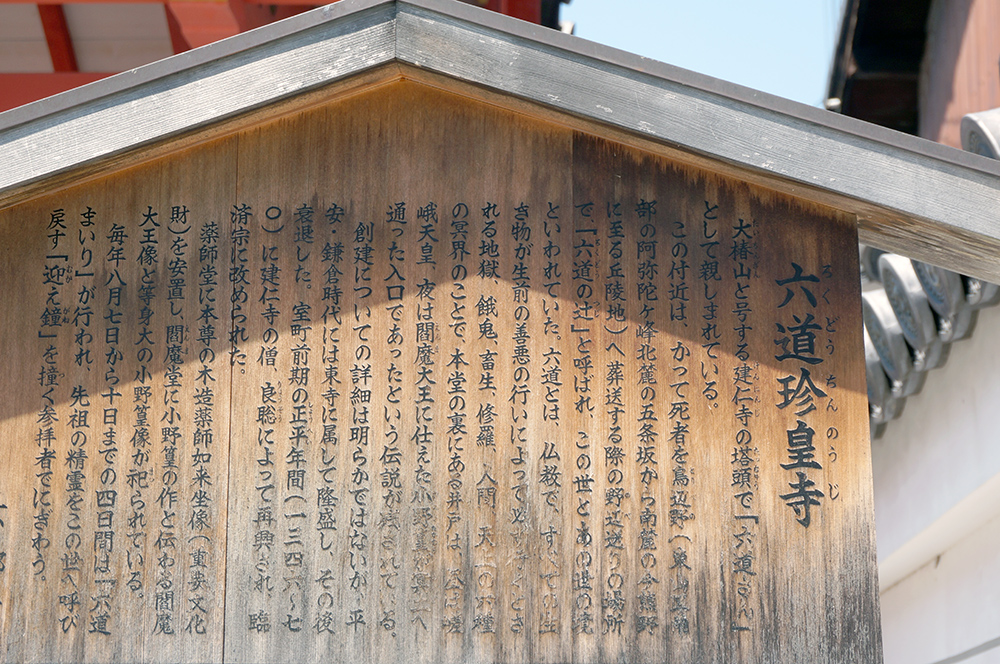 六道珍皇寺
ろくどうちんのうじ
大椿山と号する建仁寺の塔頭で「六道さん」
として親しまれている。
この付近は、かつて死者を鳥辺野
部の阿弥陀ヶ峰北麓の五条坂から南麓の今熊野
に至る丘陵地）へ葬送する際の野辺送りの場所
で、「六道の辻」と呼ばれ、この世とあの世の境
といわれていた。六道とは、仏教で、すべての生
き物が生前の善悪の行いによって必ず
れる地獄、餓鬼、畜生、修羅、人間、天上の六種
の冥界のことで、本堂の裏にある井戸は、
峨天皇、夜は閻魔大王に仕えた小野篁が冥土へ
通った入口であったという伝説が残されている。
創建についての詳細は明らかではないが、平
安・鎌倉時代には東寺に属して隆盛し、その後
衰退した。室町前期の正平年間（一三四六〜七
〇）に建仁寺の僧、良聡によって再興され、臨
済宗に改められた。
薬師堂に本尊の木造薬師如来坐像（重要文化
財）を安置し、閻魔堂に小野篁の作と伝わる閻魔
大王像と等身大の小野篁像が祀られている。
毎年八月七日から十日までの四日間は「六道
まいり」が行われ、先祖の精霊をこの世へ呼び
戻す「迎え鐘」を撞く参拝者でにぎわう。